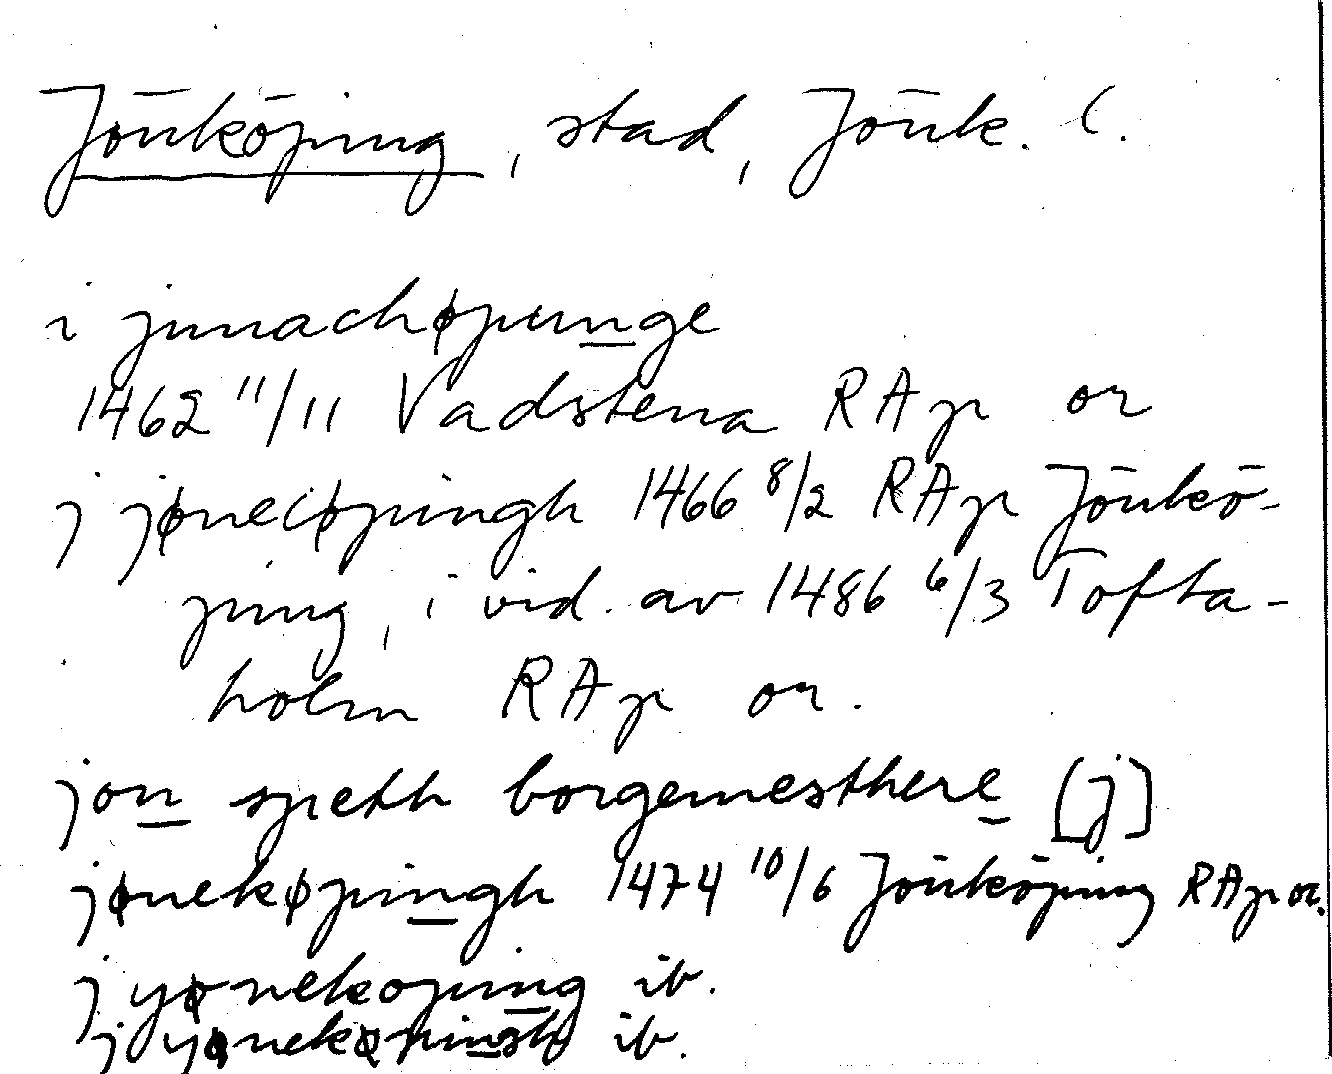 Jönköping, stad, Jönk. l.
i junachøpunge
1462 11/11 Vadstena RAp or
j jøneciøpingh 1466 8/2 RAp Jönkö-
ping, i vid. av 1486 6/3 Tofta-
holm RAp or.
jon speth borgemesthere [j]
jønekøpingh 1474 10/6 Jönköping RAp or.
j yønekoping ib.
j yønekøpingh ib.